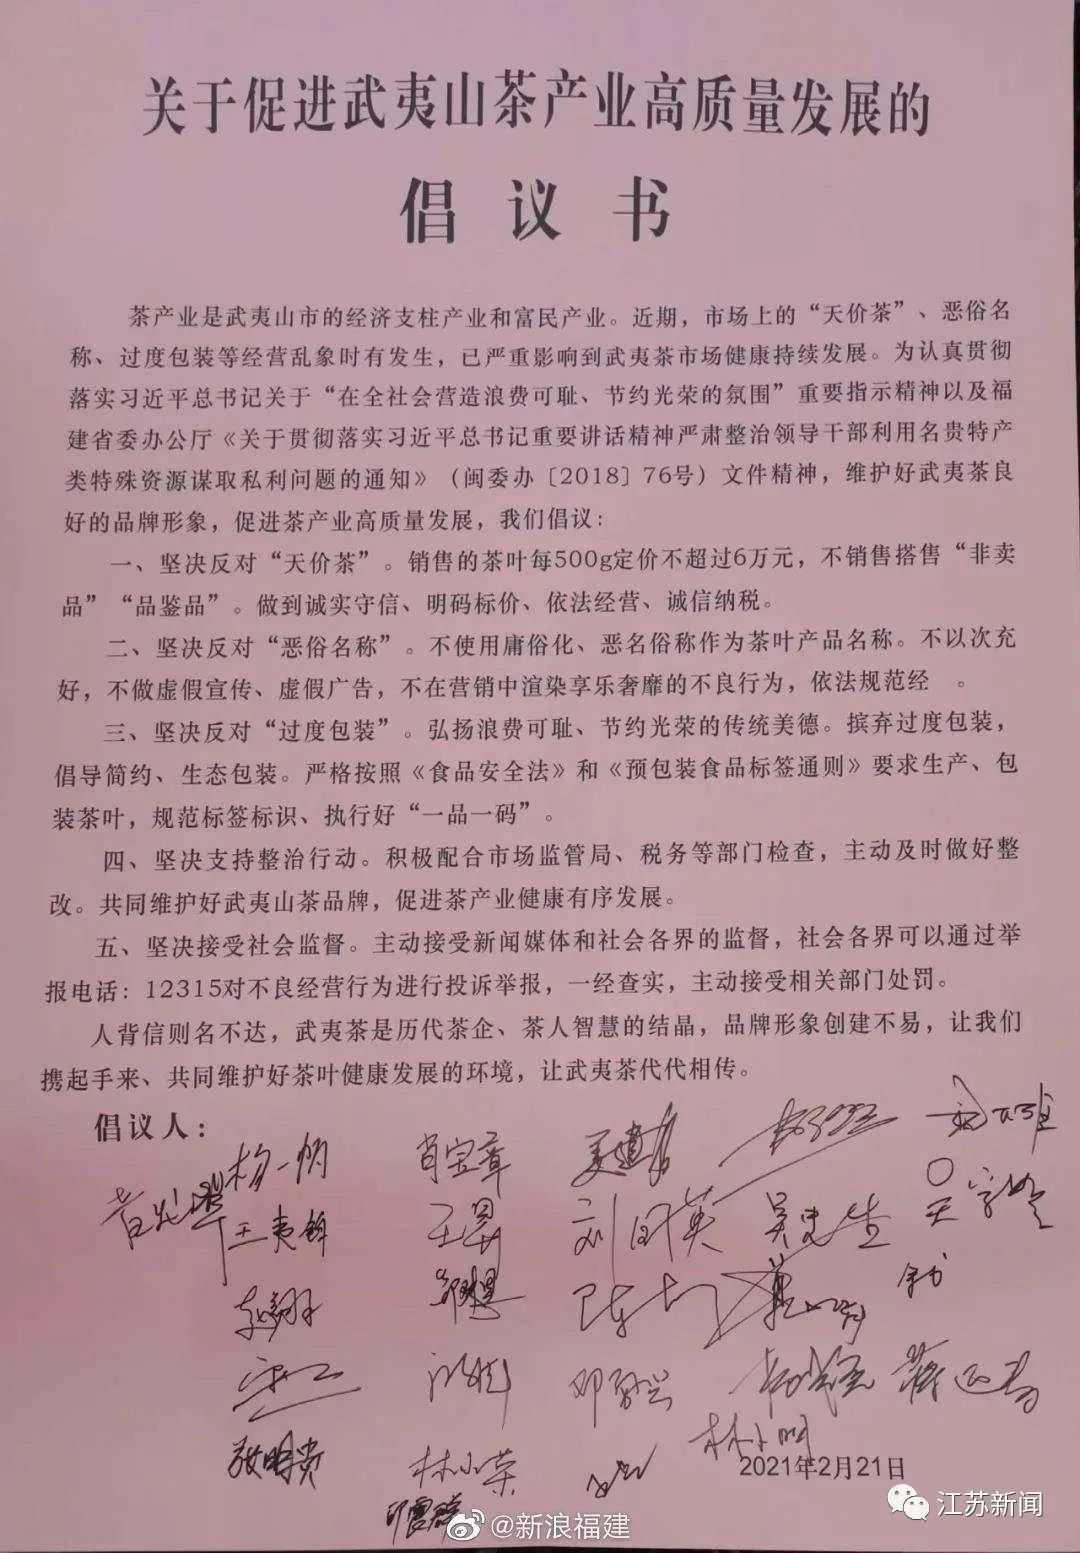 关于促进武夷山茶产业高质量发展的
倡议书
茶产业是武夷山市的经济支柱产业和富民产业。近期，市场上的“天价茶”、恶俗名
称、过度包装等经营乱象时有发生，已严重影响到武夷茶市场健康持续发展。为认真贯彻
落实习近平总书记关于“在全社会营造浪费可耻、节约光荣的氛围”重要指示精神以及福
建省委办公厅《关于贯彻落实习近平总书记重要讲话精神严肃整治领导干部利用名贵特产
类特殊资源谋取私利问题的通知》（闽委办〔2018〕76号）文件精神，维护好武夷茶良
好的品牌形象，促进茶产业高质量发展，我们倡议：
一、坚决反对“天价茶”。销售的茶叶每500g定价不超过6万元，不销售搭售“非卖
品”“品鉴品”。做到诚实守信、明码标价、依法经营、诚信纳税。
二、坚决反对“恶俗名称”。不使用庸俗化、恶名俗称作为茶叶产品名称。不以次充
好，不做虚假宣传、虚假广告，不在营销中渲染享乐奢靡的不良行为，依法规范经 。
三、坚决反对“过度包装”。弘扬浪费可耻、节约光荣的传统美德。摈弃过度包装，
倡导简约、生态包装。严格按照《食品安全法》和《预包装食品标签通则》要求生产、包
装茶叶，规范标签标识、执行好“一品一码”。
四、坚决支持整治行动。积极配合市场监管局、税务等部门检查，主动及时做好整
改。共同维护好武夷山茶品牌，促进茶产业健康有序发展。
五、坚决接受社会监督。主动接受新闻媒体和社会各界的监督，社会各界可以通过举
报电话：12315对不良经营行为进行投诉举报，一经查实，主动接受相关部门处罚。
人背信则名不达，武夷茶是历代茶企、茶人智慧的结晶，品牌形象创建不易，让我们
携起手来、共同维护好茶叶健康发展的环境，让武夷茶代代相传。
倡议人：
肖宝章
王夷 王昃 刘国英
林小荣
2021年2月21日
江苏新闻
@新浪福建